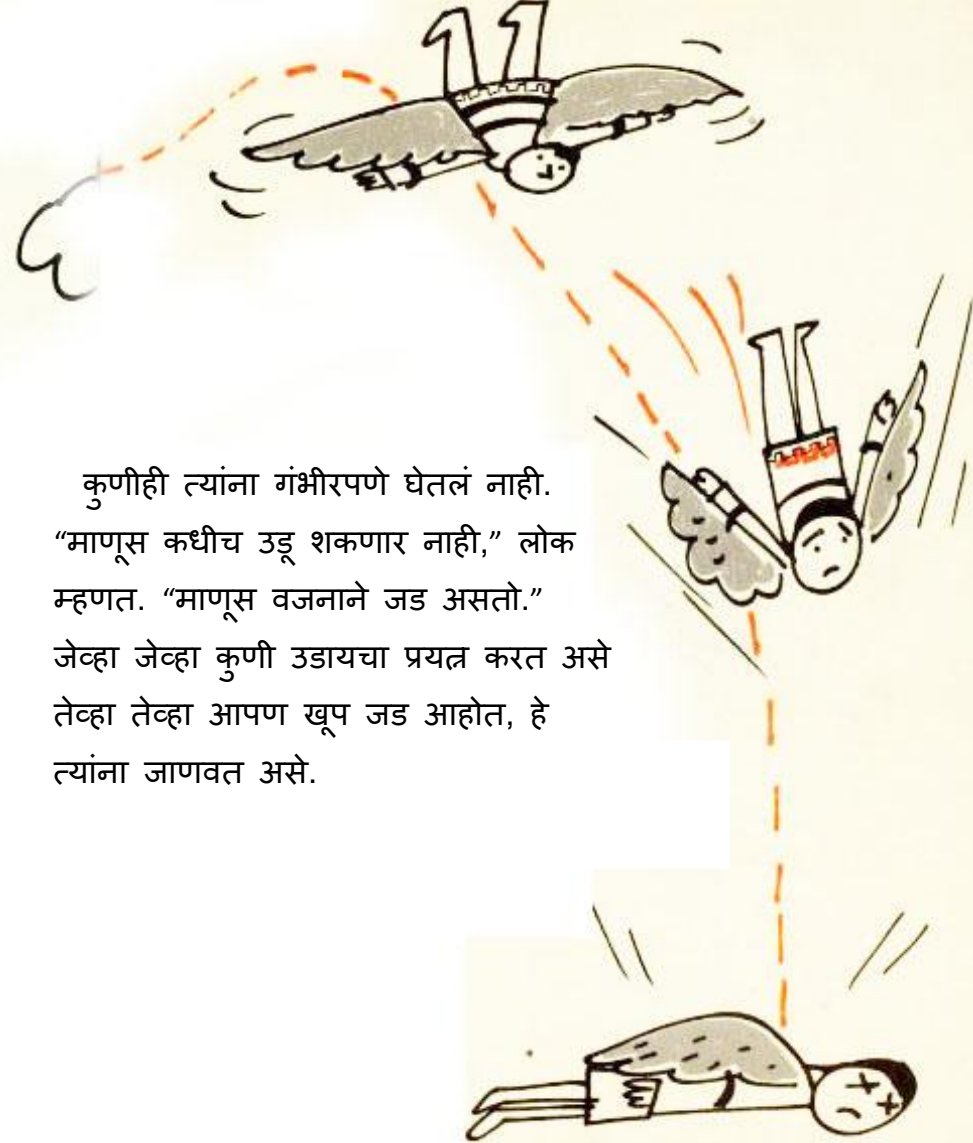 कुणीही त्यांना गंभीरपणे घेतलं नाही.
“माणूस कधीच उडू शकणार नाही,” लोक
म्हणत. “माणूस वजनाने जड असतो.”
जेव्हा जेव्हा कुणी उडायचा प्रयत्न करत असे
तेव्हा तेव्हा आपण खूप जड आहोत, हे
त्यांना जाणवत असे.